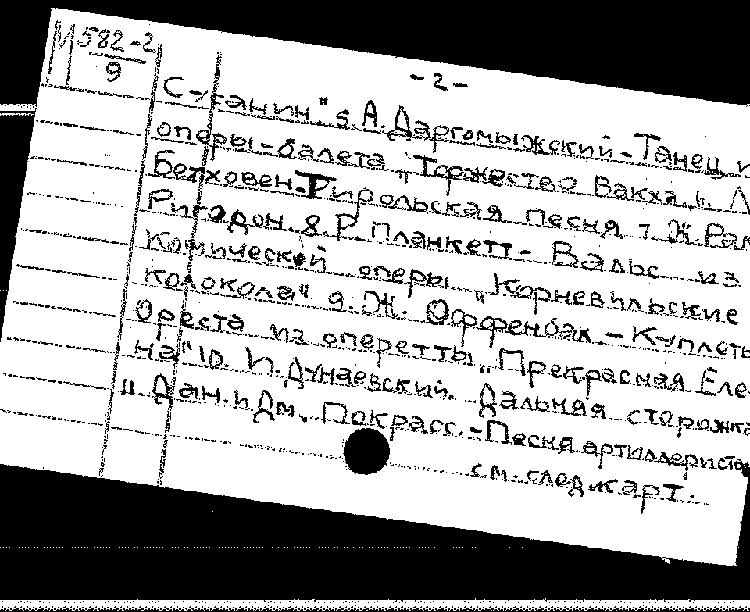 М 582-2
9
-2-
Сусанин" 5. А. Даргомыжский - Танец и
оперы-балета „Торжество Вакха" 6. Л
Бетховен - Тирольская песня 7. Ж. Рам
Ригодон 8. Р. Планкетт - Вальс из
комической оперы „Корневильские
колокола" 9. Ж. Оффенбах - Куплеты
Ореста из оперетты „Прекрасная Еле
на" 10. И. Дунаевский. Дальняя сторожка
11. Дан. и Дм. Покрасс. - Песня артиллеристов
см. след. карт.